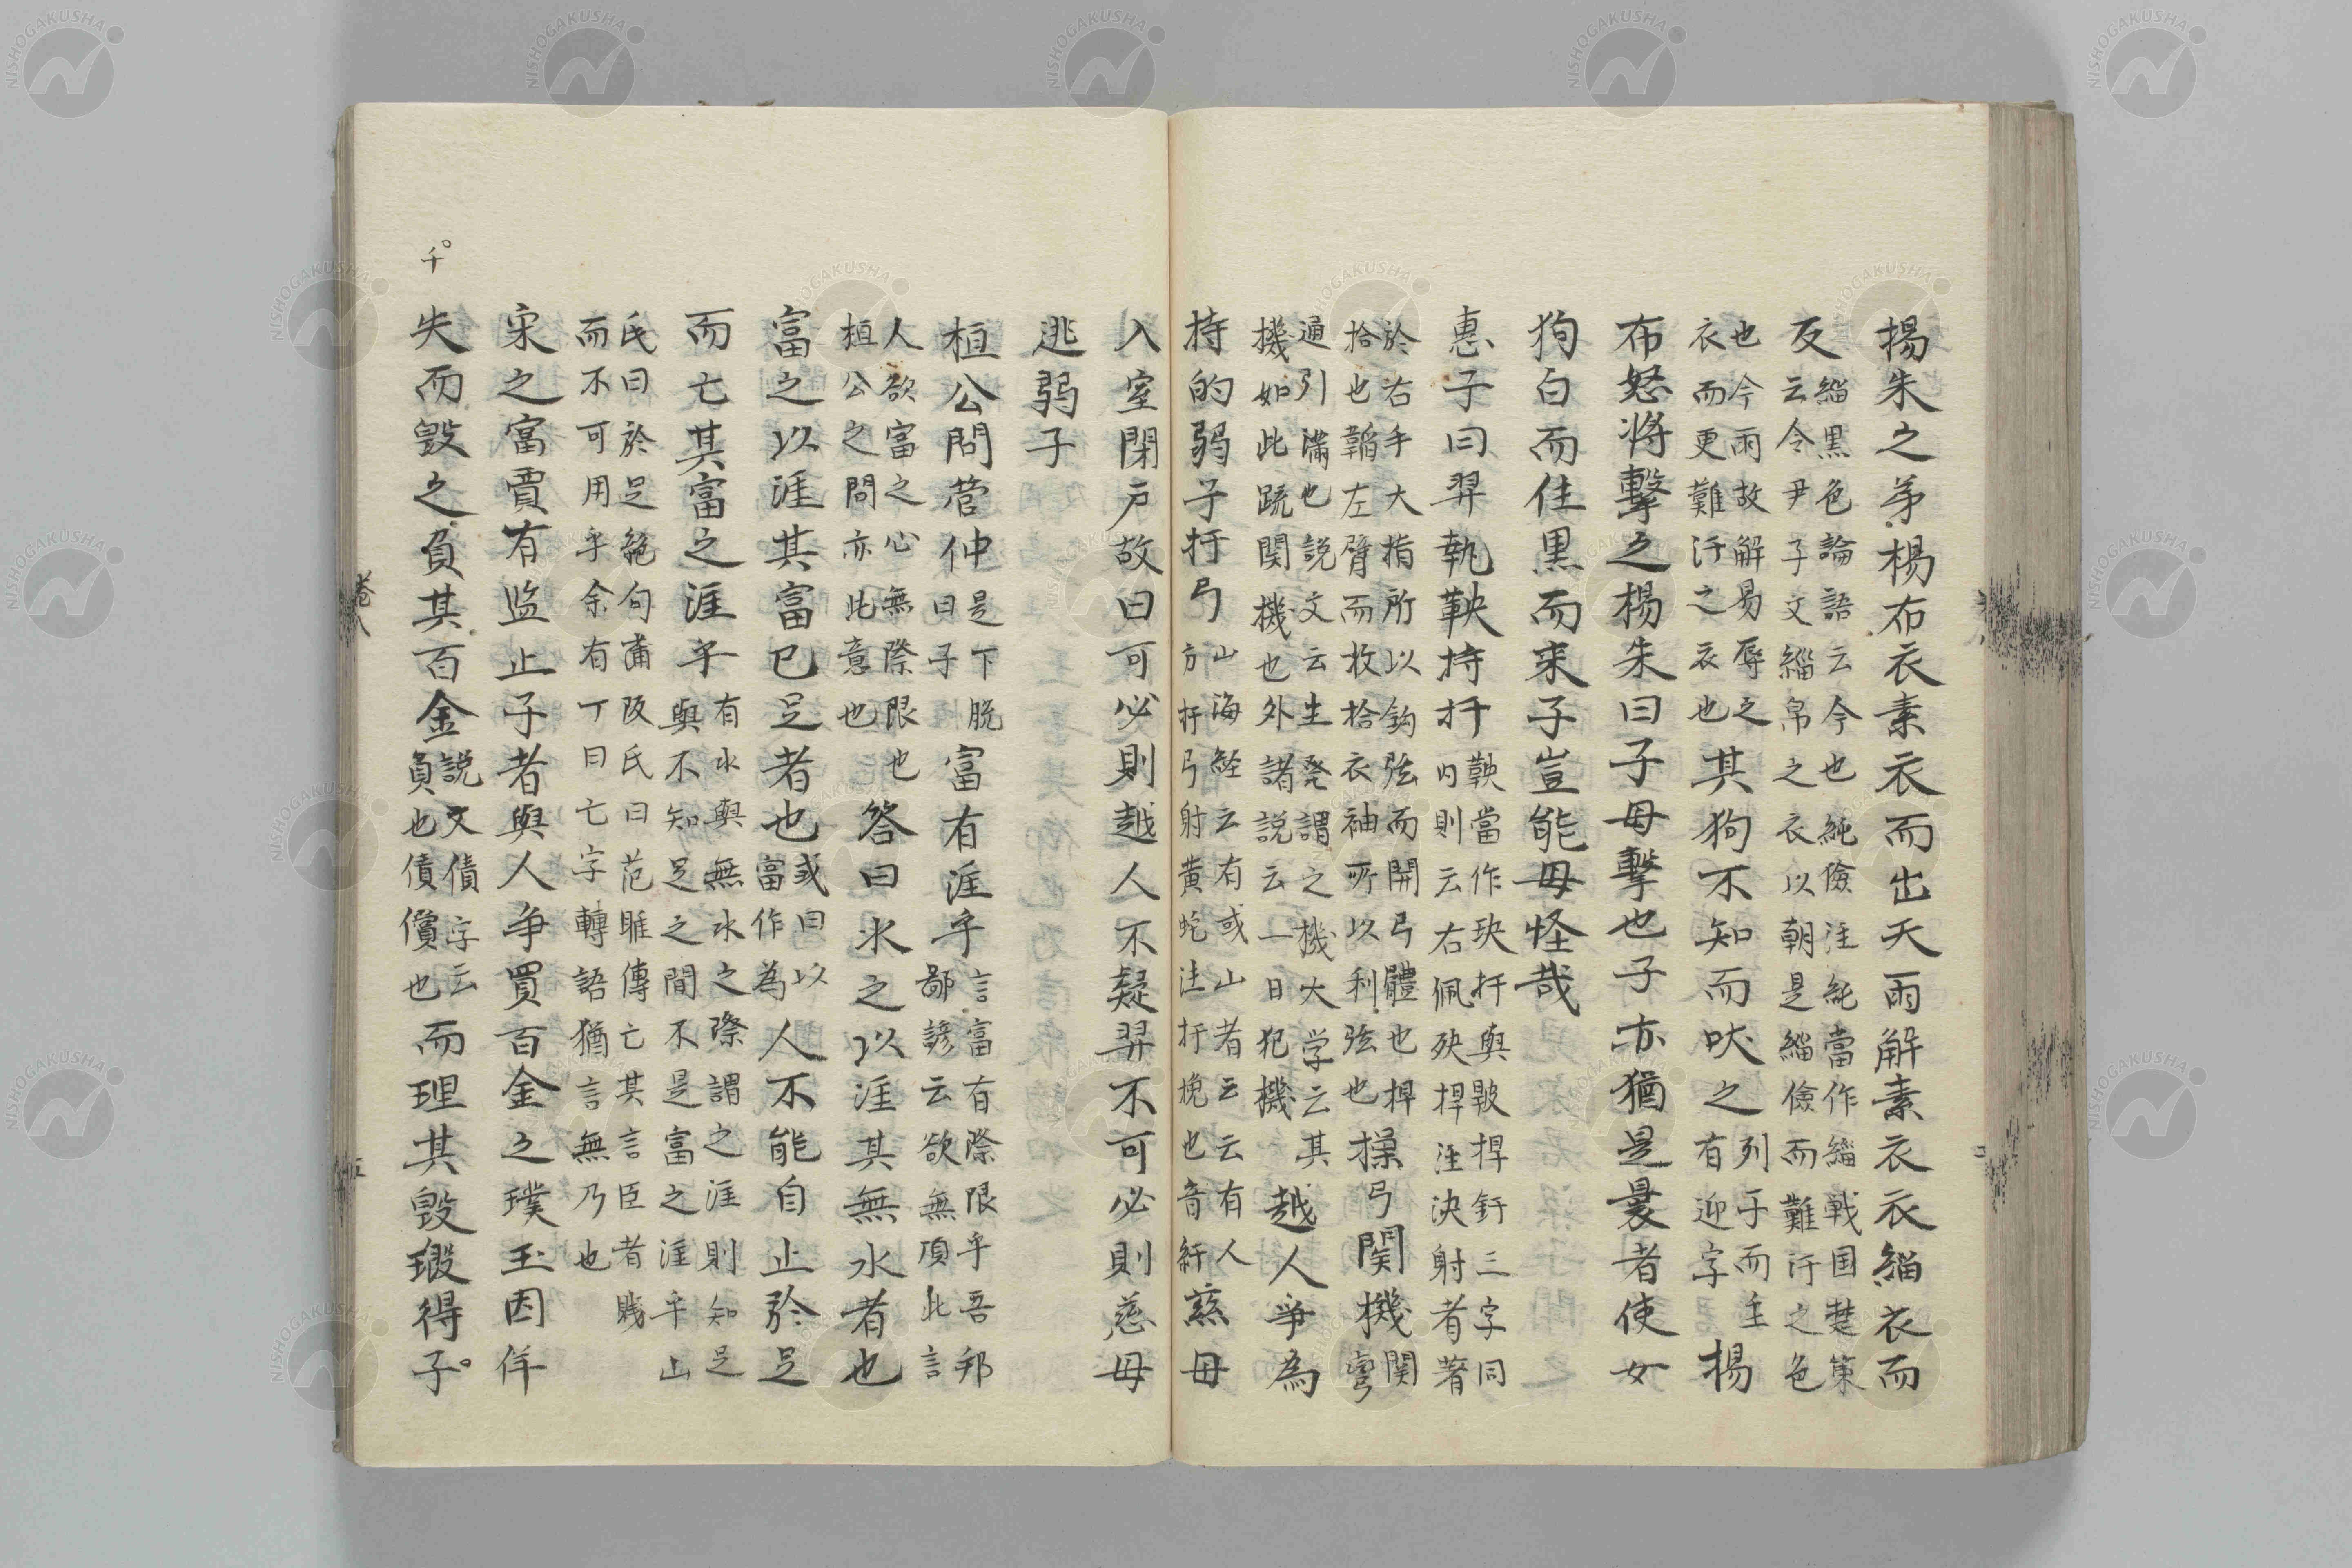 楊朱之弟楊布衣素衣而出天雨解素衣衣緇衣而
反緇黒色論語云今也純儉注純當作緇戦国楚策云令尹子文緇帛之衣以朝是緇儉而難汙之色
也今雨故解易辱之衣而更難汙之衣也其狗不知而吠之列子而上有迎字楊
布怒将撃之楊朱曰子毋撃也子亦猶是曩者使女
狗白而住黒而来子豈能毋怪哉
惠子曰羿執鞅持扞鞅當作玦扞與䩛捍釬三字同内則云右佩玦捍注決射者著
於右手大指所以鈎弦而開弓體也捍拾也韜左臂而收拾衣袖所以利弦也操弓関機関彎
通引滿也説文云主発謂之機大学云其機如此疏関機也外諸説云一日犯機越人爭為
持的弱子扞弓山海経云有或山者云云有人方扜弓射黄蛇注扜挽也音紆慈母
入室閉戸故曰可必則越人不疑羿不可必則慈母
逃弱子
桓公問管仲是下脱曰子富有涯乎言富有際限乎吾邦鄙諺云欲無頂此言
人欲富之心無際限也桓公之問亦此意也答曰水之以涯其無水者也
富之以涯其富已足者也或曰以富作為人不能自止於足
而亡其富之涯乎有水與無水之際謂之涯則知足與不知足之間不是富之涯乎山
氏曰於足絶句蒲阪氏曰范雎傳亡其言臣者賤而不可用乎余有丁曰亡字轉語猶言無乃也
宋之富賈有监止子者與人争買百金之璞玉因佯
失而毀之負其百金説文債字云負也債償也而理其毀瑕得子。
千
卷八
五